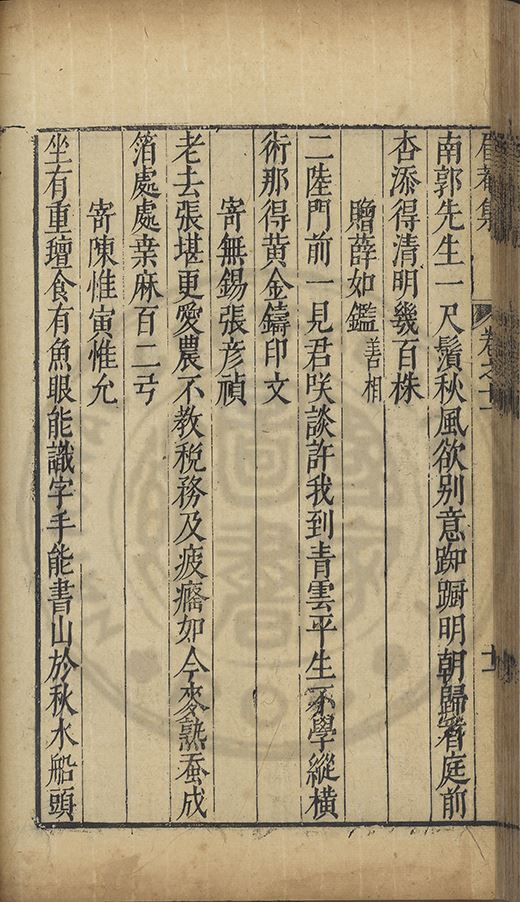 眉菴集
卷之十一
十一
南郭先生一尺鬚秋風欲别意踟蹰明朝歸看庭前
杏添得清明幾百株
贈薛如鑑善相
二陸門前一見君咲談許我到青雲平生不學縱橫
術那得黄金鑄印文
寄無錫張彦禎
老去張堪更愛農不教稅務及疲癃如今麥熟蚕成
箔處處桒麻百二弓
寄陳惟寅惟允
坐有重氊食有魚眼能識字手能書山於秋水船頭